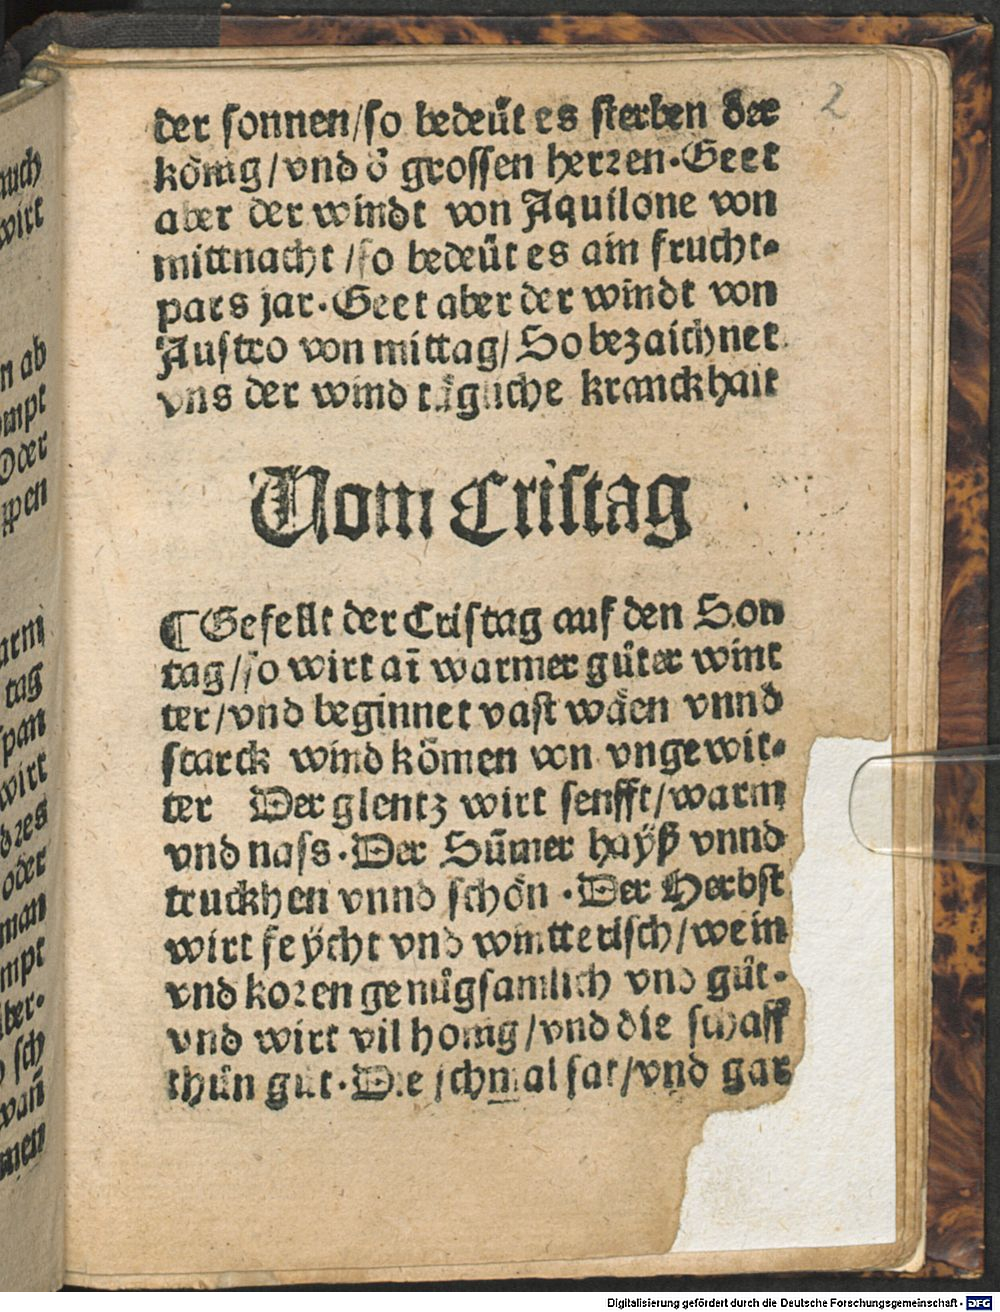 der sonnen/so bedeüt es sterben der
könig/vnd ð grossen herren. Geet
aber der windt von Aquilone von
mittnacht/so bedeüt es ain frucht-
pars jar. Geet aber der windt von
Austro von mittag/So bezaichnet
vns der wind tägliche kranckhait
Vom Cristag
¶ Gefellt der Cristag auf den Son
tag/so wirt aī warmer gůter wint
ter/vnd beginnet vast wäen vnnd
starck wind kōmen von vngewit-
ter Der glentz wirt senfft/warm
vnd nass. Der Sūmer hayß vnnd
truckhen vnnd schön. Der Herbst
wirt feÿcht vnd wintterisch/wein
vnd koren genůgsamlich vnd gůt.
vnd wirt vil honig/vnd die schaff
thůn gůt. Die schmalsat/vnd gar
2
auch
wirt
n ab
ompt
Oder
ppen
arm
tag
span
wirt
oder
man
mpt
ber.
sch
men
Digitalisierung gefördert durch die Deutsche Forschungsgemeinschaft - DFG